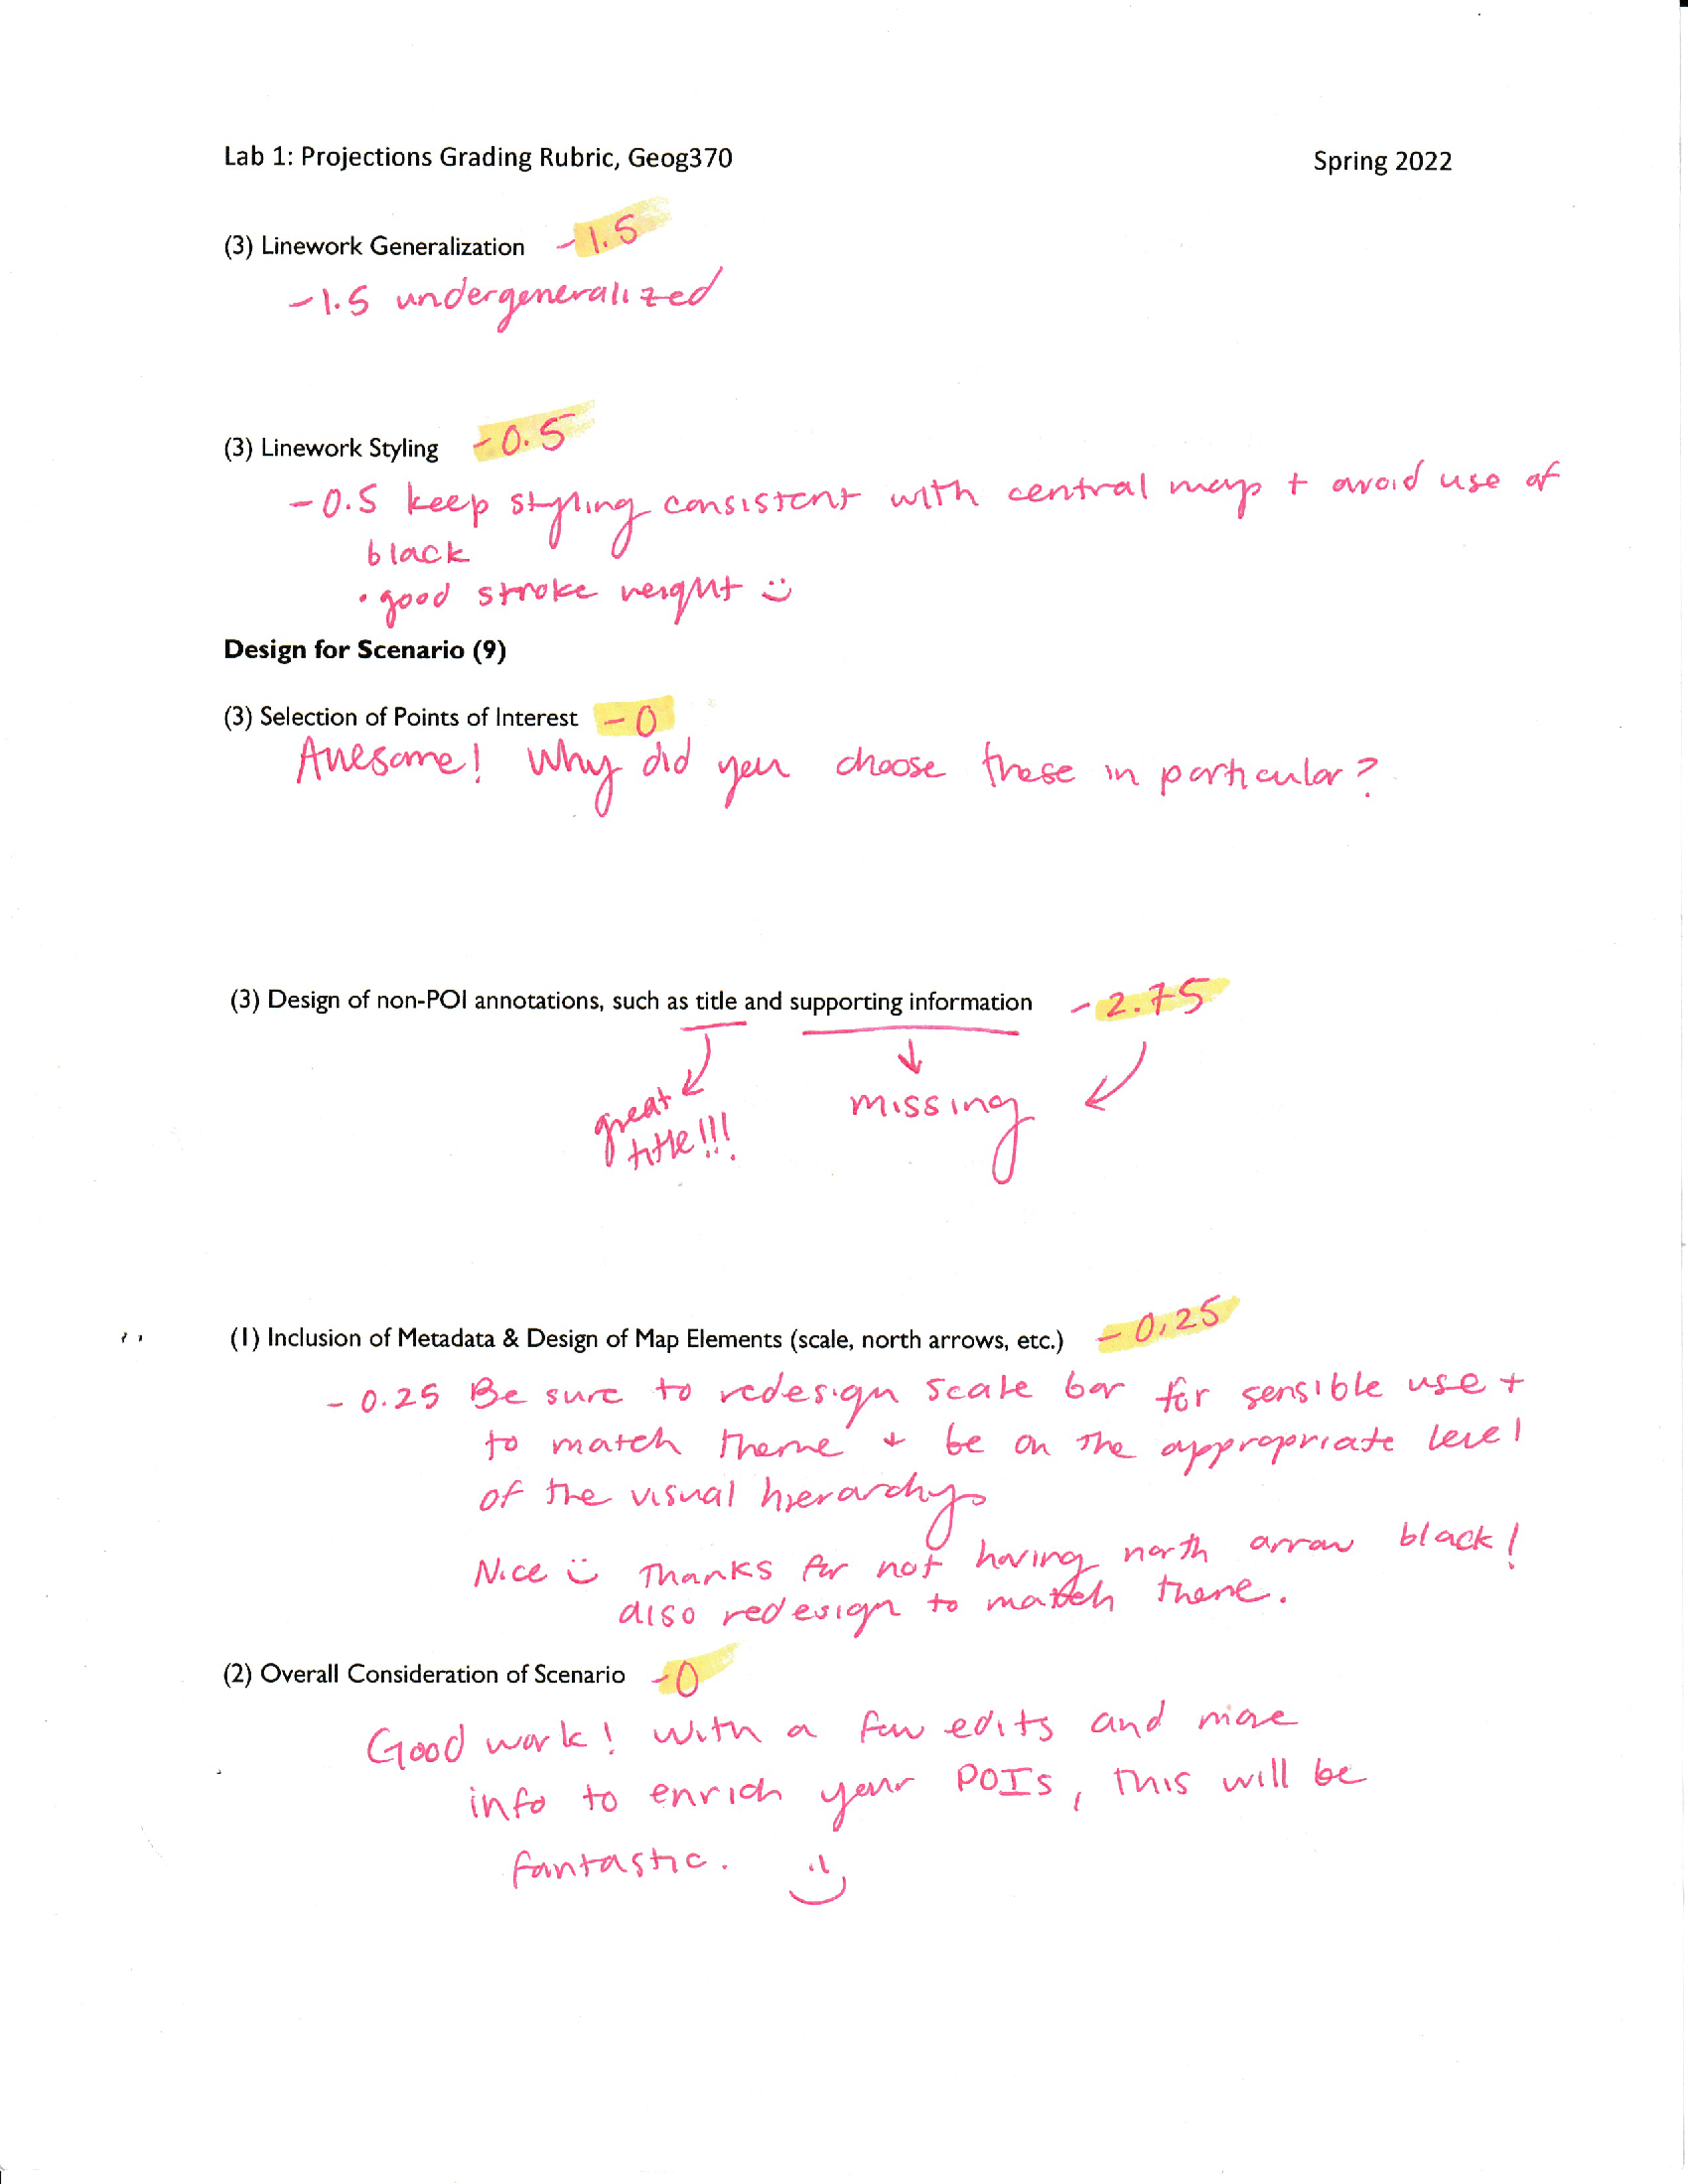 Lab 1: Projections Grading Rubric, Geog370 Spring 2022
(3) Linework Generalization -1.5
-1.5 undergeneralized
(3) Linework Styling -0.5
-0.5 keep styling consistent with central map + avoid use of
black
• good stroke weight :)
Design for Scenario (9)
(3) Selection of Points of Interest -0
Awesome! Why did you choose these in particular?
(3) Design of non-POI annotations, such as title and supporting information -2.75
great
title!!!
missing
(1) Inclusion of Metadata & Design of Map Elements (scale, north arrows, etc.) -0.25
-0.25 Be sure to redesign scale bar for sensible use +
to match theme + be on the appropriate level
of the visual hierarchy
Nice :) Thanks for not having north arrow black!
also redesign to match theme.
(2) Overall Consideration of Scenario -0
Good work! With a few edits and more
info to enrich your POIs, this will be
fantastic. :)